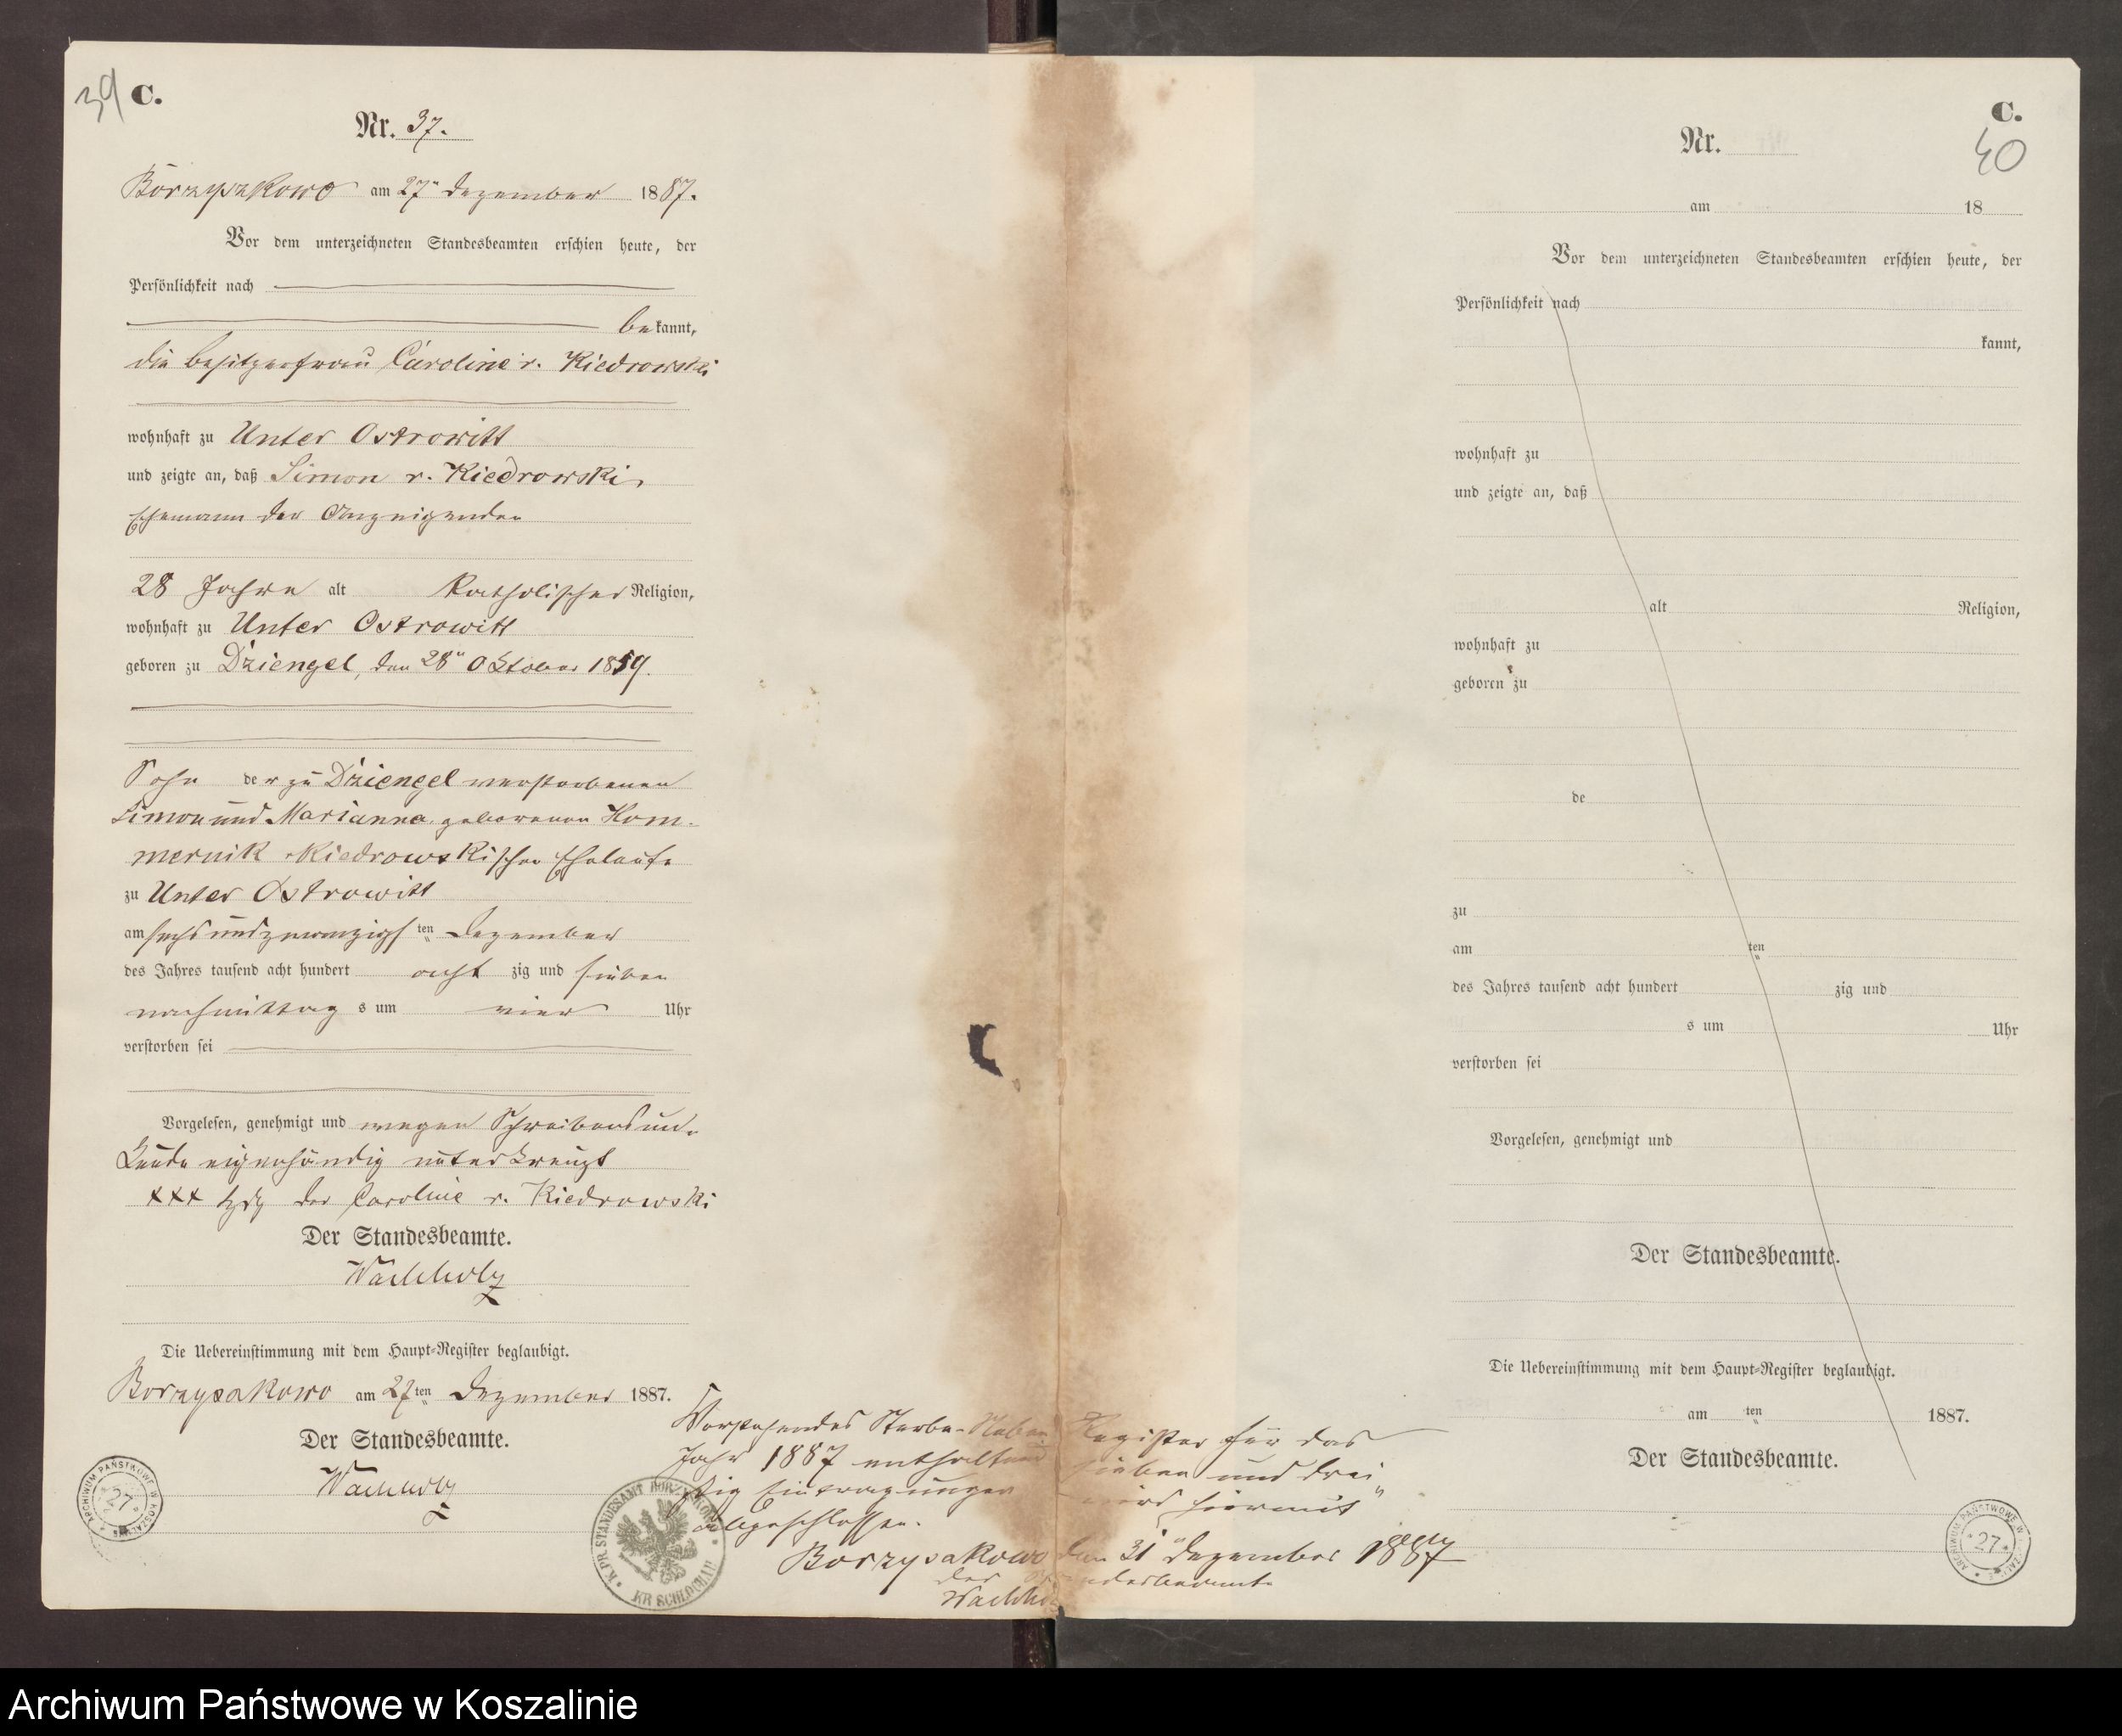 39
C.
Nr. 37.
Borzyszkowo am 27" Dezember 1887.
Vor dem unterzeichneten Standesbeamten erschien heute, der
Persönlichkeit nach
bekannt,
die Besitzerfrau Caroline v. Kiedrowski
wohnhaft zu Unter Ostrowitt
und zeigte an, daß Simon v. Kiedrowski,
Ehemann der Anzeigenden
28 Jahre alt katholischer Religion,
wohnhaft zu Unter Ostrowitt
geboren zu Dziengel, den 28" Oktober 1859.
Sohn der zu Dziengel verstorbenen
Simon und Marianna geborenen Kom-
mernik Kiedrowskischen Eheleute
zu Unter Ostrowitt
am sechs und zwanzigsten Dezember
des Jahres tausend acht hundert acht zig und sieben
nachmittags um vier Uhr
verstorben sei
Vorgelesen, genehmigt und wegen Schreibensun-
kunde eigenhändig unterkreuzt
xxx der Caroline v. Kiedrowski
Der Standesbeamte.
Wachholz
Die Uebereinstimmung mit dem Haupt-Register beglaubigt.
Borzyszkowo am 27ten Dezember 1887.
Der Standesbeamte.
Wachholz
Vorstehendes Sterbe-Neben Register für das
Jahr 1887 enthaltend sieben und drei
ßig Eintragungen wird hiermit
abgeschlossen.
Borzyszkowo den 31" Dezember 1887
der Standesbeamte
Wachholz
K. PR. STANDESAMT BORZYSZKOWO
KR SCHLOCHAU
ARCHIWUM PAŃSTWOWE W KOSZALINIE
27
C.
40
Nr.
am 18
Vor dem unterzeichneten Standesbeamten erschien heute, der
Persönlichkeit nach
kannt,
wohnhaft zu
und zeigte an, daß
alt Religion,
wohnhaft zu
geboren zu
de
zu
am ten
des Jahres tausend acht hundert zig und
s um Uhr
verstorben sei
Vorgelesen, genehmigt und
Der Standesbeamte.
Die Uebereinstimmung mit dem Haupt-Register beglaubigt.
am ten 1887.
Der Standesbeamte.
ARCHIWUM PAŃSTWOWE W KOSZALINIE
27
Archiwum Państwowe w Koszalinie